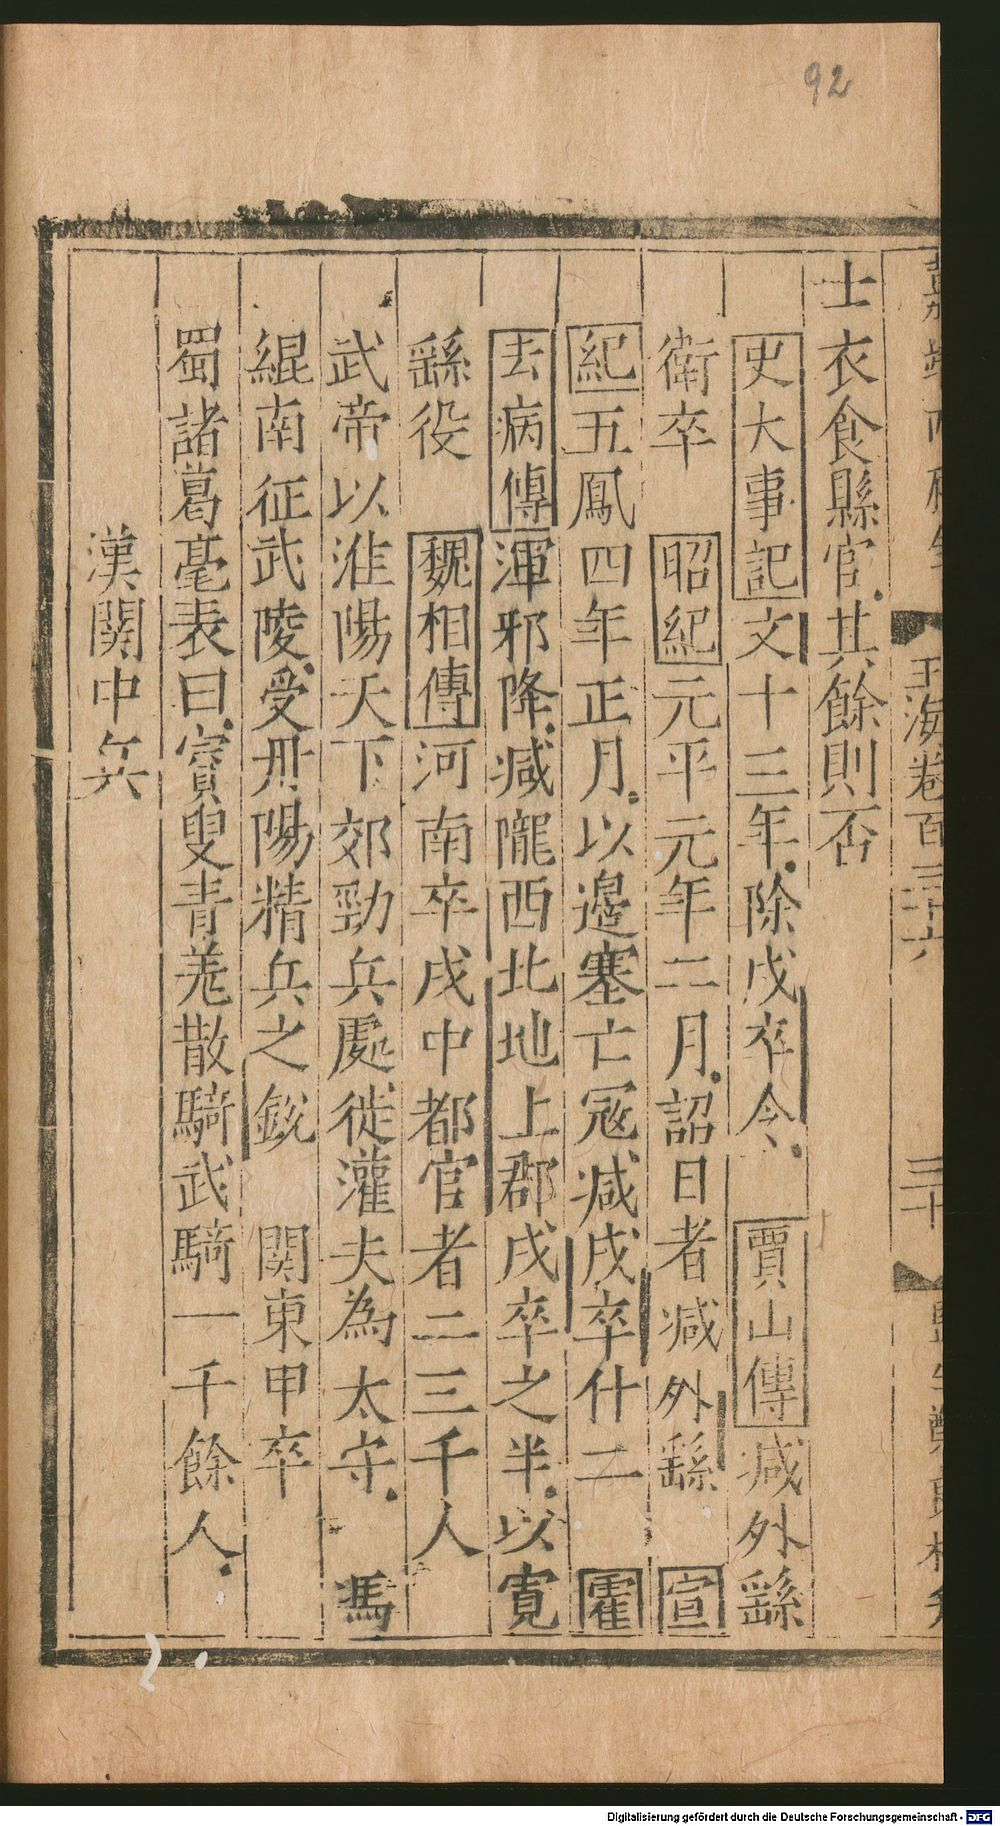 92
玉海卷百三十六
三十
士衣食縣官其餘則否
史大事記文十三年除戍卒令 賈山傳減外繇
衛卒 昭紀元平元年二月詔曰者減外繇 宣
紀五鳳四年正月以邊塞亡冦減戍卒什二 霍
去病傳渾邪降減隴西北地上郡戍卒之半以寛
繇役 魏相傳河南卒戍中都官者二三千人
武帝以淮陽天下郊勁兵處徙灌夫為太守 馬
緄南征武陵受丹陽精兵之銳 関東甲卒
蜀諸葛亳表曰賨叟青羗散騎武騎一千餘人
漢関中兵
Digitalisierung gefördert durch die Deutsche Forschungsgemeinschaft - DFG